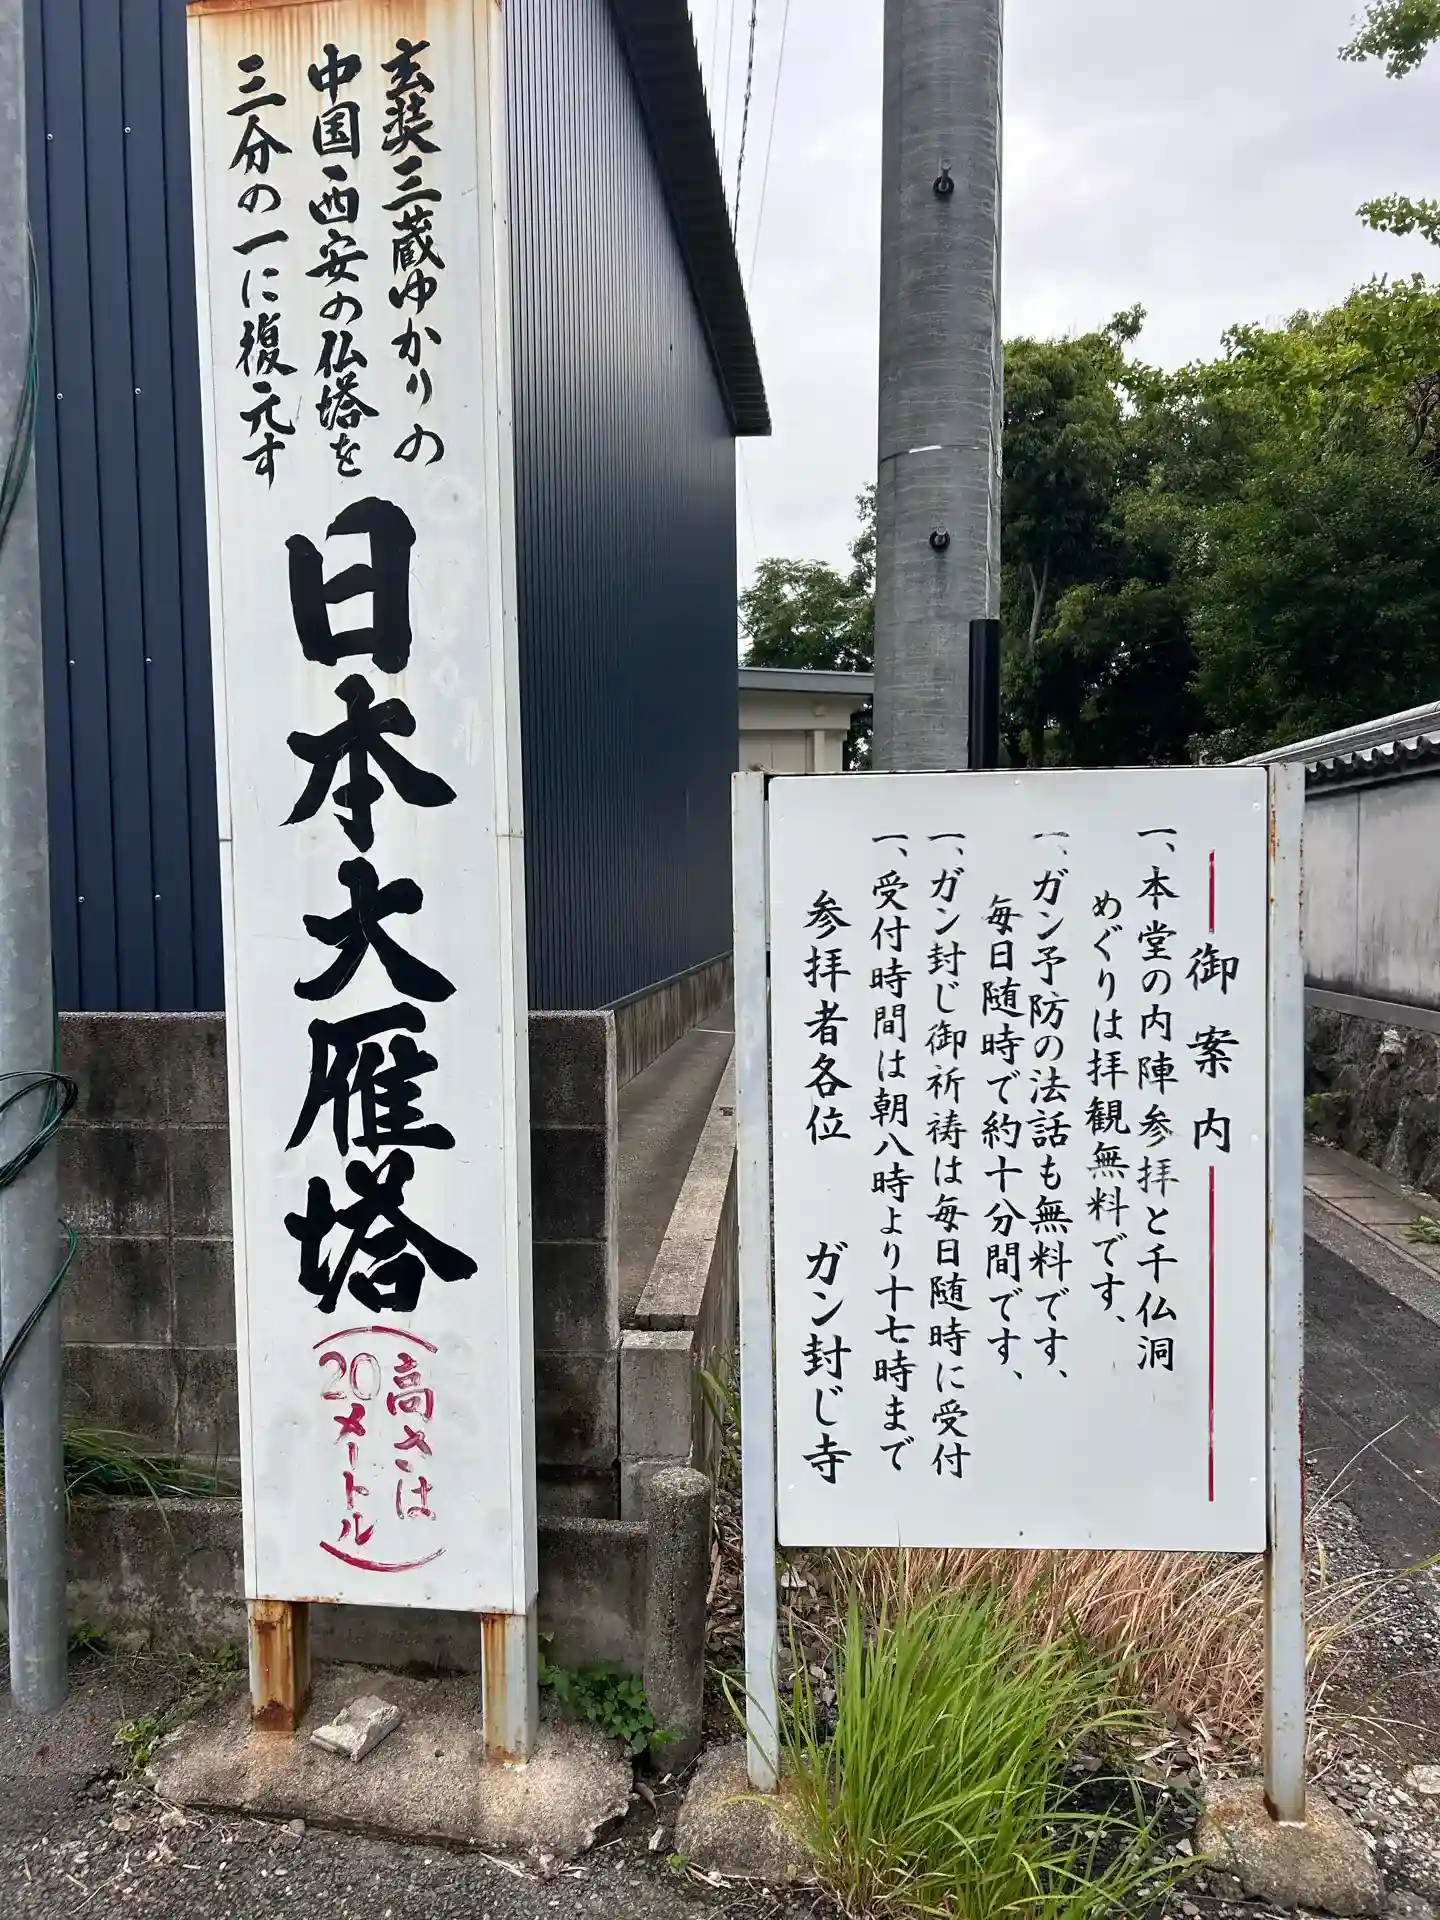 玄奘三蔵ゆかりの
中国西安の仏塔を
三分の一に復元す
日本大雁塔
(高さは
20メートル)
御案内
一、本堂の内陣参拝と千仏洞
めぐりは拝観無料です、
一、ガン予防の法話も無料です、
毎日随時で約十分間です、
一、ガン封じ御祈祷は毎日随時に受付
一、受付時間は朝八時より十七時まで
参拝者各位 ガン封じ寺